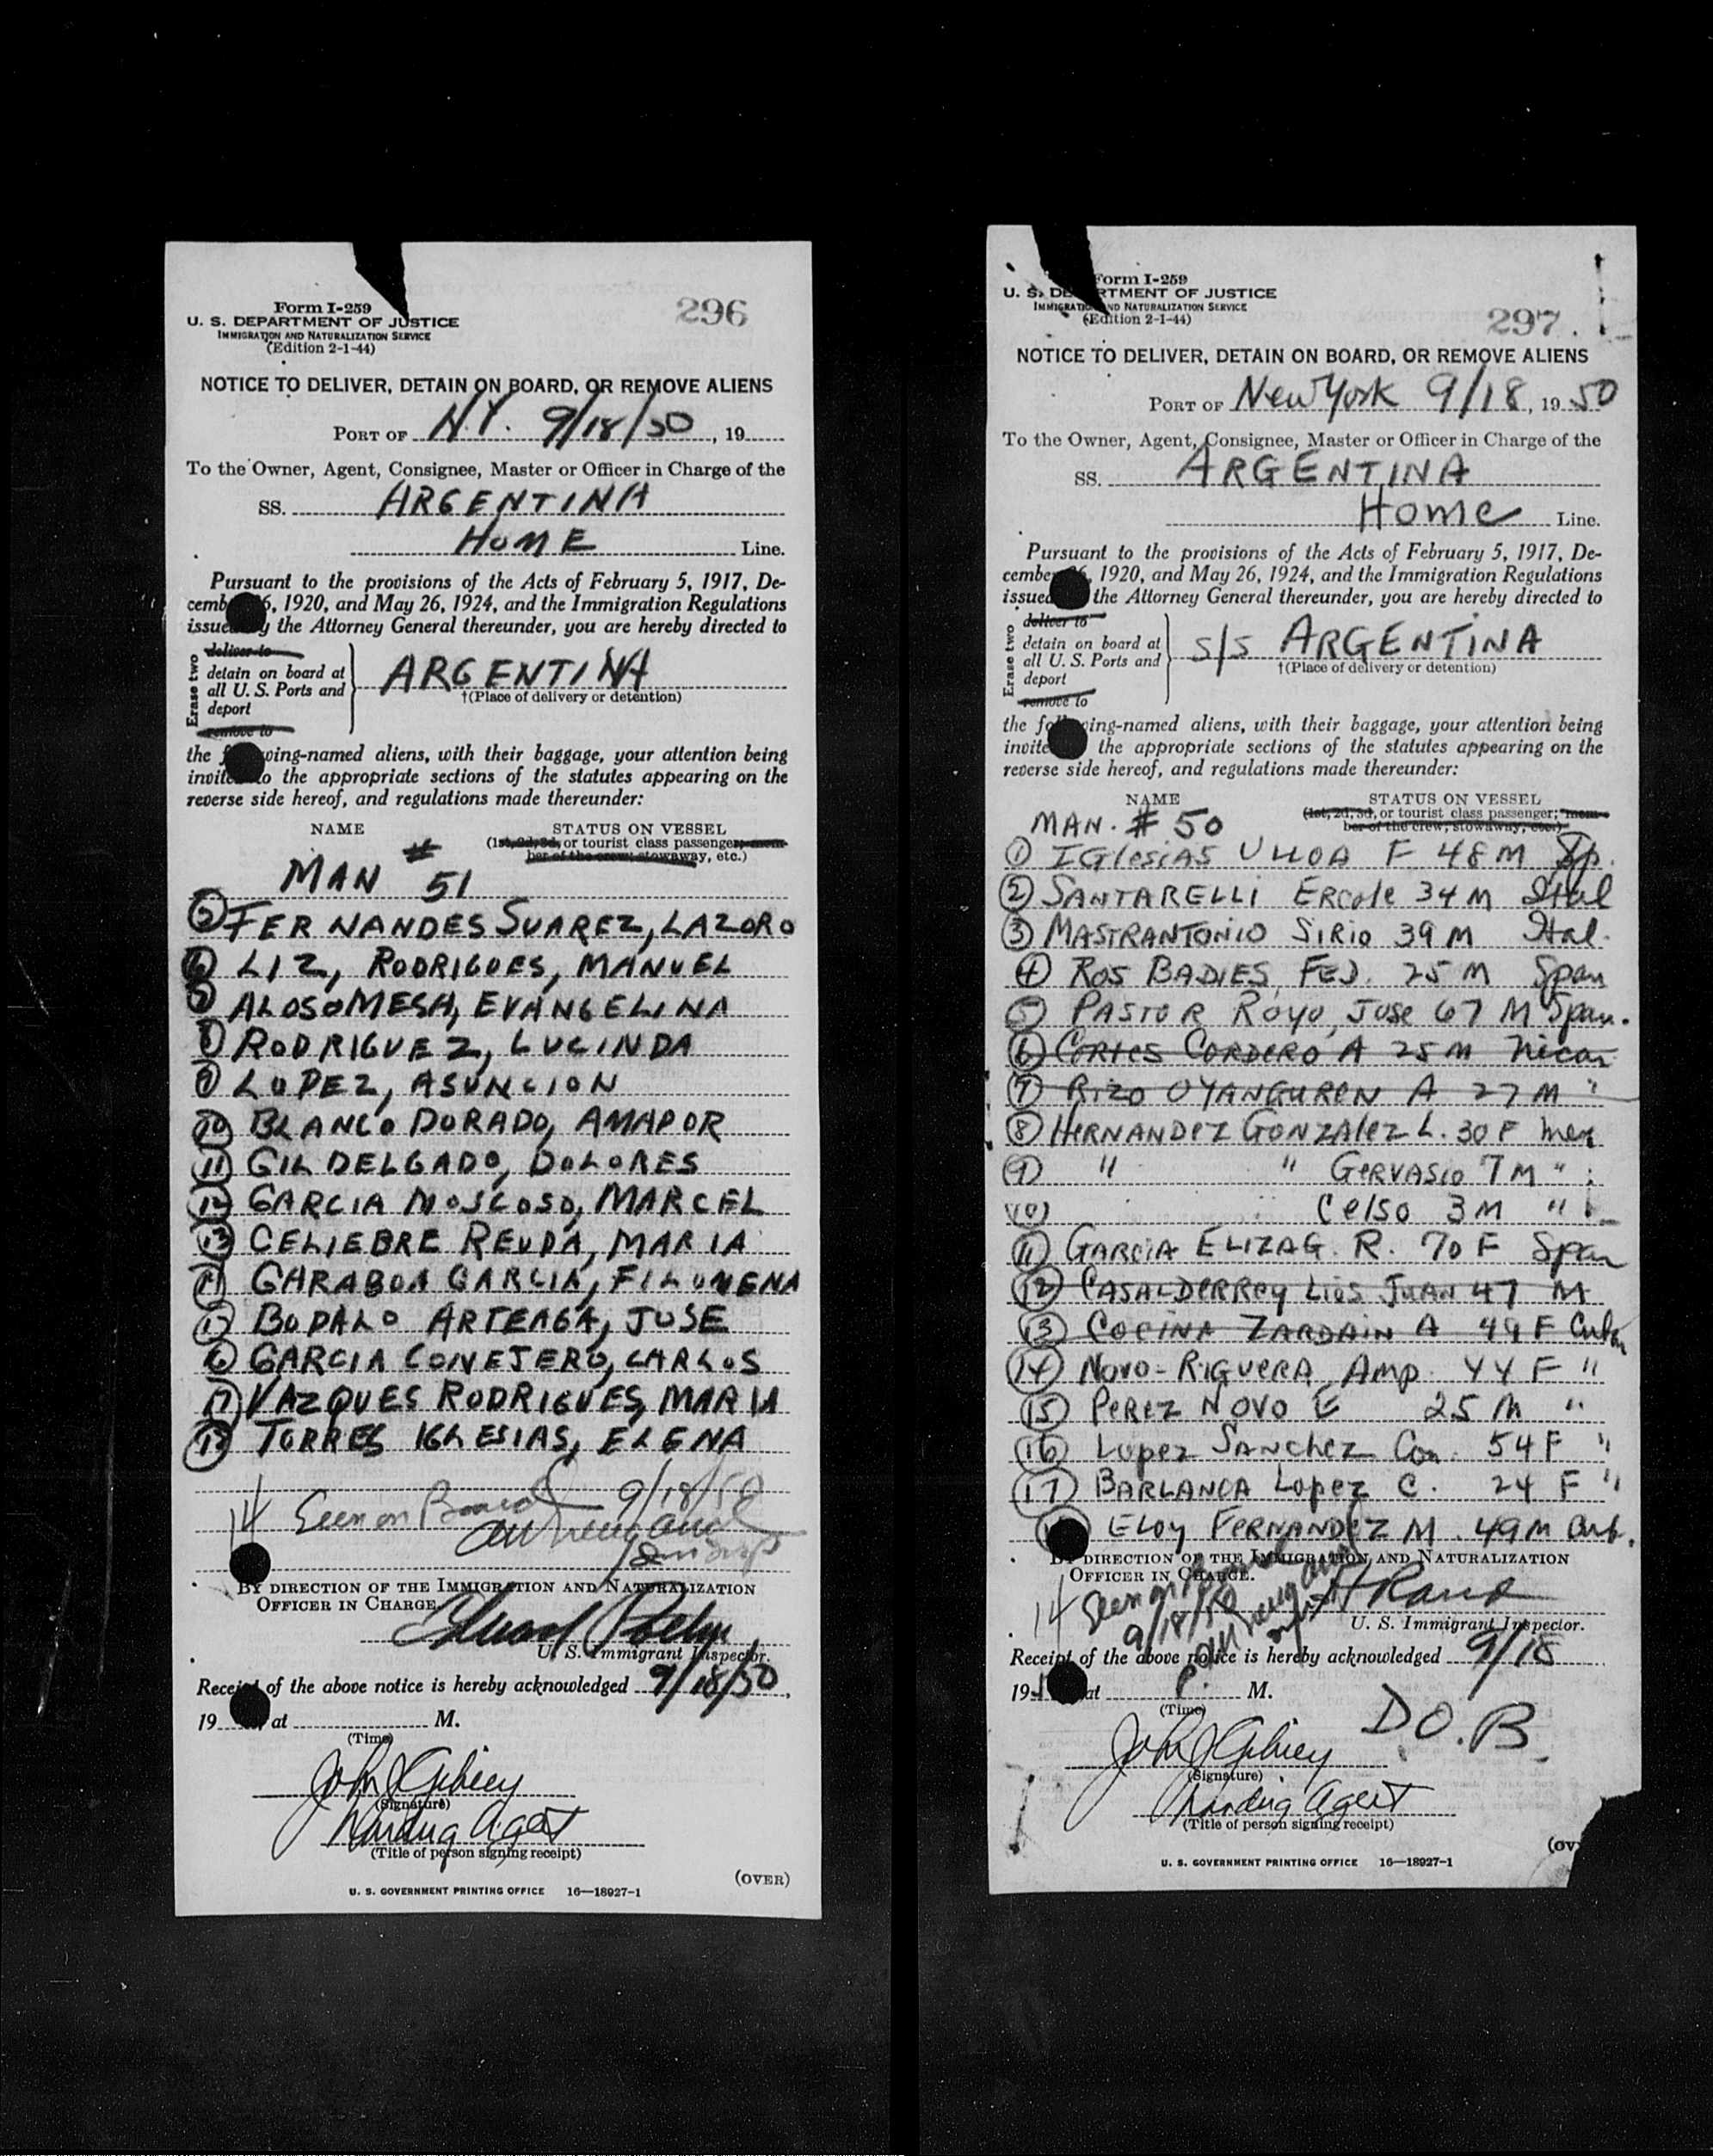 Form I-259
U. S. DEPARTMENT OF JUSTICE
IMMIGRATION AND NATURALIZATION SERVICE
(Edition 2-1-44)
296
NOTICE TO DELIVER, DETAIN ON BOARD, OR REMOVE ALIENS
PORT OF N.Y. 9/18/50, 19
To the Owner, Agent, Consignee, Master or Officer in Charge of the
SS. ARGENTINA
HOME Line.
Pursuant to the provisions of the Acts of February 5, 1917, De-
cemb 6, 1920, and May 26, 1924, and the Immigration Regulations
issue y the Attorney General thereunder, you are hereby directed to
Erase two
deliver to
detain on board at
all U. S. Ports and
deport
remove to
ARGENTINA
†(Place of delivery or detention)
the f wing-named aliens, with their baggage, your attention being
invite to the appropriate sections of the statutes appearing on the
reverse side hereof, and regulations made thereunder:
NAME
STATUS ON VESSEL
(1st, 2d, 3d, or tourist class passenger; mem-
ber of the crew; stowaway, etc.)
MAN # 51
5 FERNANDES SUAREZ, LAZORO
6 LIZ, RODRIGUES, MANUEL
7 ALOSOMESA, EVANGELINA
8 RODRIGUEZ, LUCINDA
9 LOPEZ, ASUNCION
10 BLANCO DORADO, AMAPOR
11 GIL DELGADO, DOLORES
12 GARCIA MOSCOSO, MARCEL
13 CELIEBRE REUDA, MARIA
14 GARABOA GARCIA, FILOMENA
15 BOPALO ARTEAGA, JOSE
16 GARCIA CONEJERO, CARLOS
17 VAZQUES RODRIGUES, MARIA
18 TORRES IGLESIAS, ELENA
14 Seen on Board 9/18/50
BY DIRECTION OF THE IMMIGRATION AND NATURALIZATION
OFFICER IN CHARGE.
U. S. Immigrant Inspector.
Receipt of the above notice is hereby acknowledged 9/18/50,
19 at M.
(Time)
John J Gibney
(Signature)
Landing Agent
(Title of person signing receipt)
(OVER)
U. S. GOVERNMENT PRINTING OFFICE 16—18927-1
Form I-259
U. S. DE RTMENT OF JUSTICE
IMMIGRATIO ND NATURALIZATION SERVICE
(Edition 2-1-44)
297
NOTICE TO DELIVER, DETAIN ON BOARD, OR REMOVE ALIENS
PORT OF New York 9/18, 19 50
To the Owner, Agent, Consignee, Master or Officer in Charge of the
SS. ARGENTINA
Home Line.
Pursuant to the provisions of the Acts of February 5, 1917, De-
cembe 6, 1920, and May 26, 1924, and the Immigration Regulations
issued the Attorney General thereunder, you are hereby directed to
Erase two
deliver to
detain on board at
all U. S. Ports and
deport
remove to
S/S ARGENTINA
†(Place of delivery or detention)
the fo wing-named aliens, with their baggage, your attention being
invite the appropriate sections of the statutes appearing on the
reverse side hereof, and regulations made thereunder:
NAME
STATUS ON VESSEL
(1st, 2d, 3d, or tourist class passenger; mem-
ber of the crew; stowaway, etc.)
MAN. # 50
1 IGlesiAS UlloA F 48 M Sp.
2 SANTARELLI Ercole 34 M Ital
3 MASTRANTONIO SiRio 39 M Ital.
4 ROS BADIES, FEJ. 25 M Span
5 PASTOR Royo, Jose 67 M Span.
6 CORTES CORDERO A 25 M Nicar
7 Rizo OYANGUREN A 27 M "
8 HERNANDEZ GONZALEZ L. 30 F Mex
9 " " GERVASIO 7 M "
10 Celso 3 M "
11 GARCIA ELIZAG. R. 70 F Span
12 CASALDERREY Lios JUAN 47 M
13 COCINA ZARDAIN A 49 F Cuban
14 Novo-RIGUERA Amp. 44 F "
15 PEREZ NOVO E 25 M "
16 Lopez SANCHEZ Con. 54 F "
17 BARLANCA Lopez C. 24 F "
ELOY FERNANDEZ M. 49 M Cub.
BY DIRECTION OF THE IMMIGRATION AND NATURALIZATION
OFFICER IN CHARGE.
14 Seen on Board
9/18/50
U. S. Immigrant Inspector.
Receipt of the above notice is hereby acknowledged 9/18
19 at P. M.
(Time)
D.O.B.
John J Gibney
(Signature)
Landing Agent
(Title of person signing receipt)
(OV
U. S. GOVERNMENT PRINTING OFFICE 16—18927-1